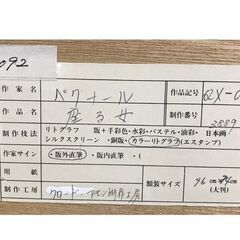 092
作家名 ペクナール 作品記号 62X-0
作品名 座る女 制作番号 3889
制作技法 リトグラフ 版+手彩色・水彩・パステル・油彩・日本画
シルクスクリーン ・銅版・カラーリトグラフ(エスタンプ)
作家サイン ・版外直筆 ・版内直筆 ・
用紙 額装サイズ 96 cm
制作工房 クロード・ 工房 (大判)